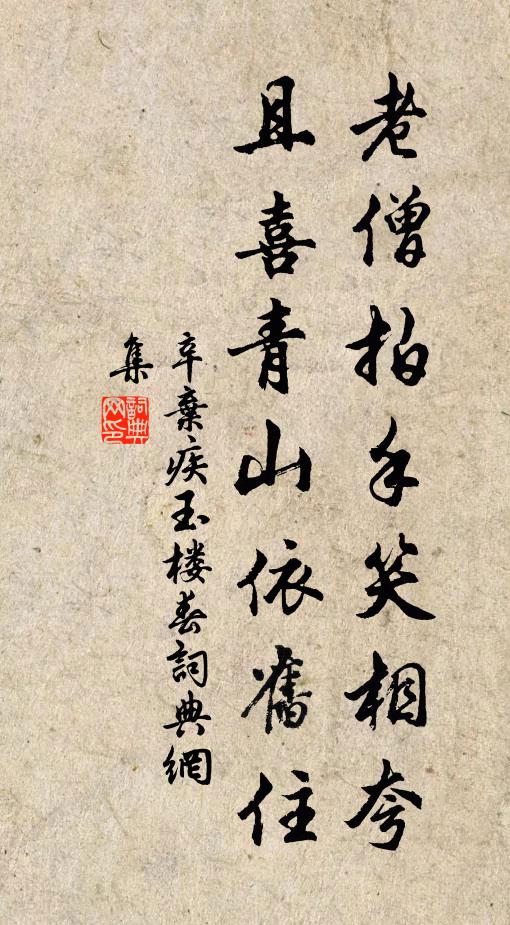 老僧拍手笑相夸
且喜青山依舊住
辛棄疾玉楼春詞典網
集
詞典网印